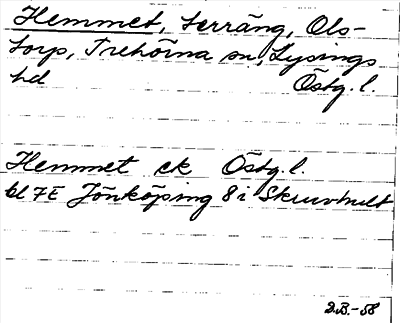 Hemmet, terräng, Ols-
torp, Trehörna sn, Lysings
hd Östg. l.
Hemmet ek Östg. l.
bl 7E Jönköping 8 i Skruvhult
D.B.-58